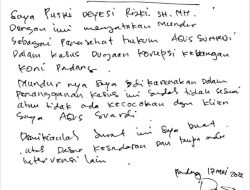 Saya PUTRI DEYESI RIZKI SH. MH.
Dengan ini menyatakan Mundur
Sebagai Penasehat hukum AGUS SUARDI
Dalam kasus Dugaan Korupsi Keuangan
KONI Padang
Mundur nya Saya di karenakan Dalam
Penanganan Kasus ini Sudah tidak sesuai
atau tidak ada Kecocokan dgn Klien
Saya AGUS Suardi
Demikianlah Surat ini Saya buat
atas Dasar Kesadaran dan tanpa ada
intervensi lain
Padang 17 Mei 2022